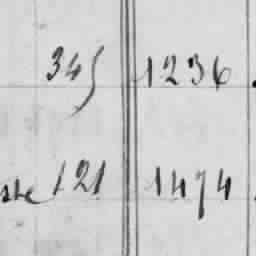 345 1236
121 1474